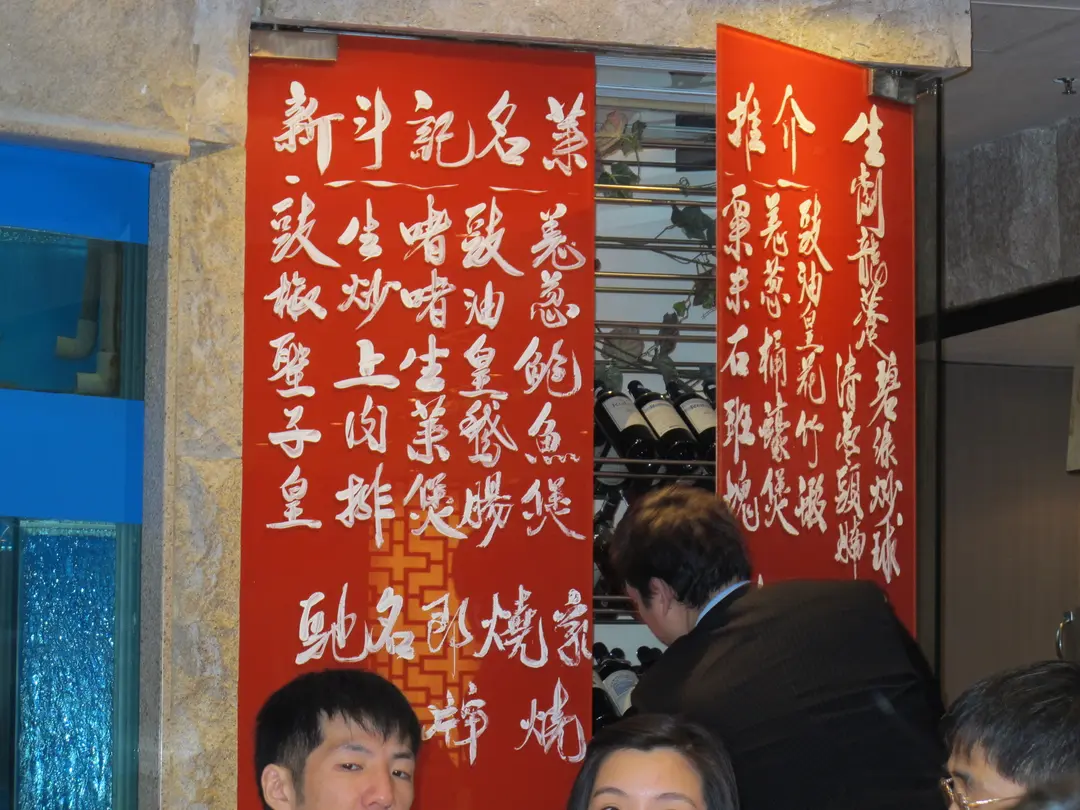 新斗記名菜
豉椒聖子皇
生炒上肉排
啫啫生菜煲
豉油皇鵝腸
羌葱鮑魚煲
馳名即燒
燒
推介
粟米石班塊
羌葱桶蠔煲
豉油皇花竹
生劏龍躉
清蒸頭腩
碧綠炒球